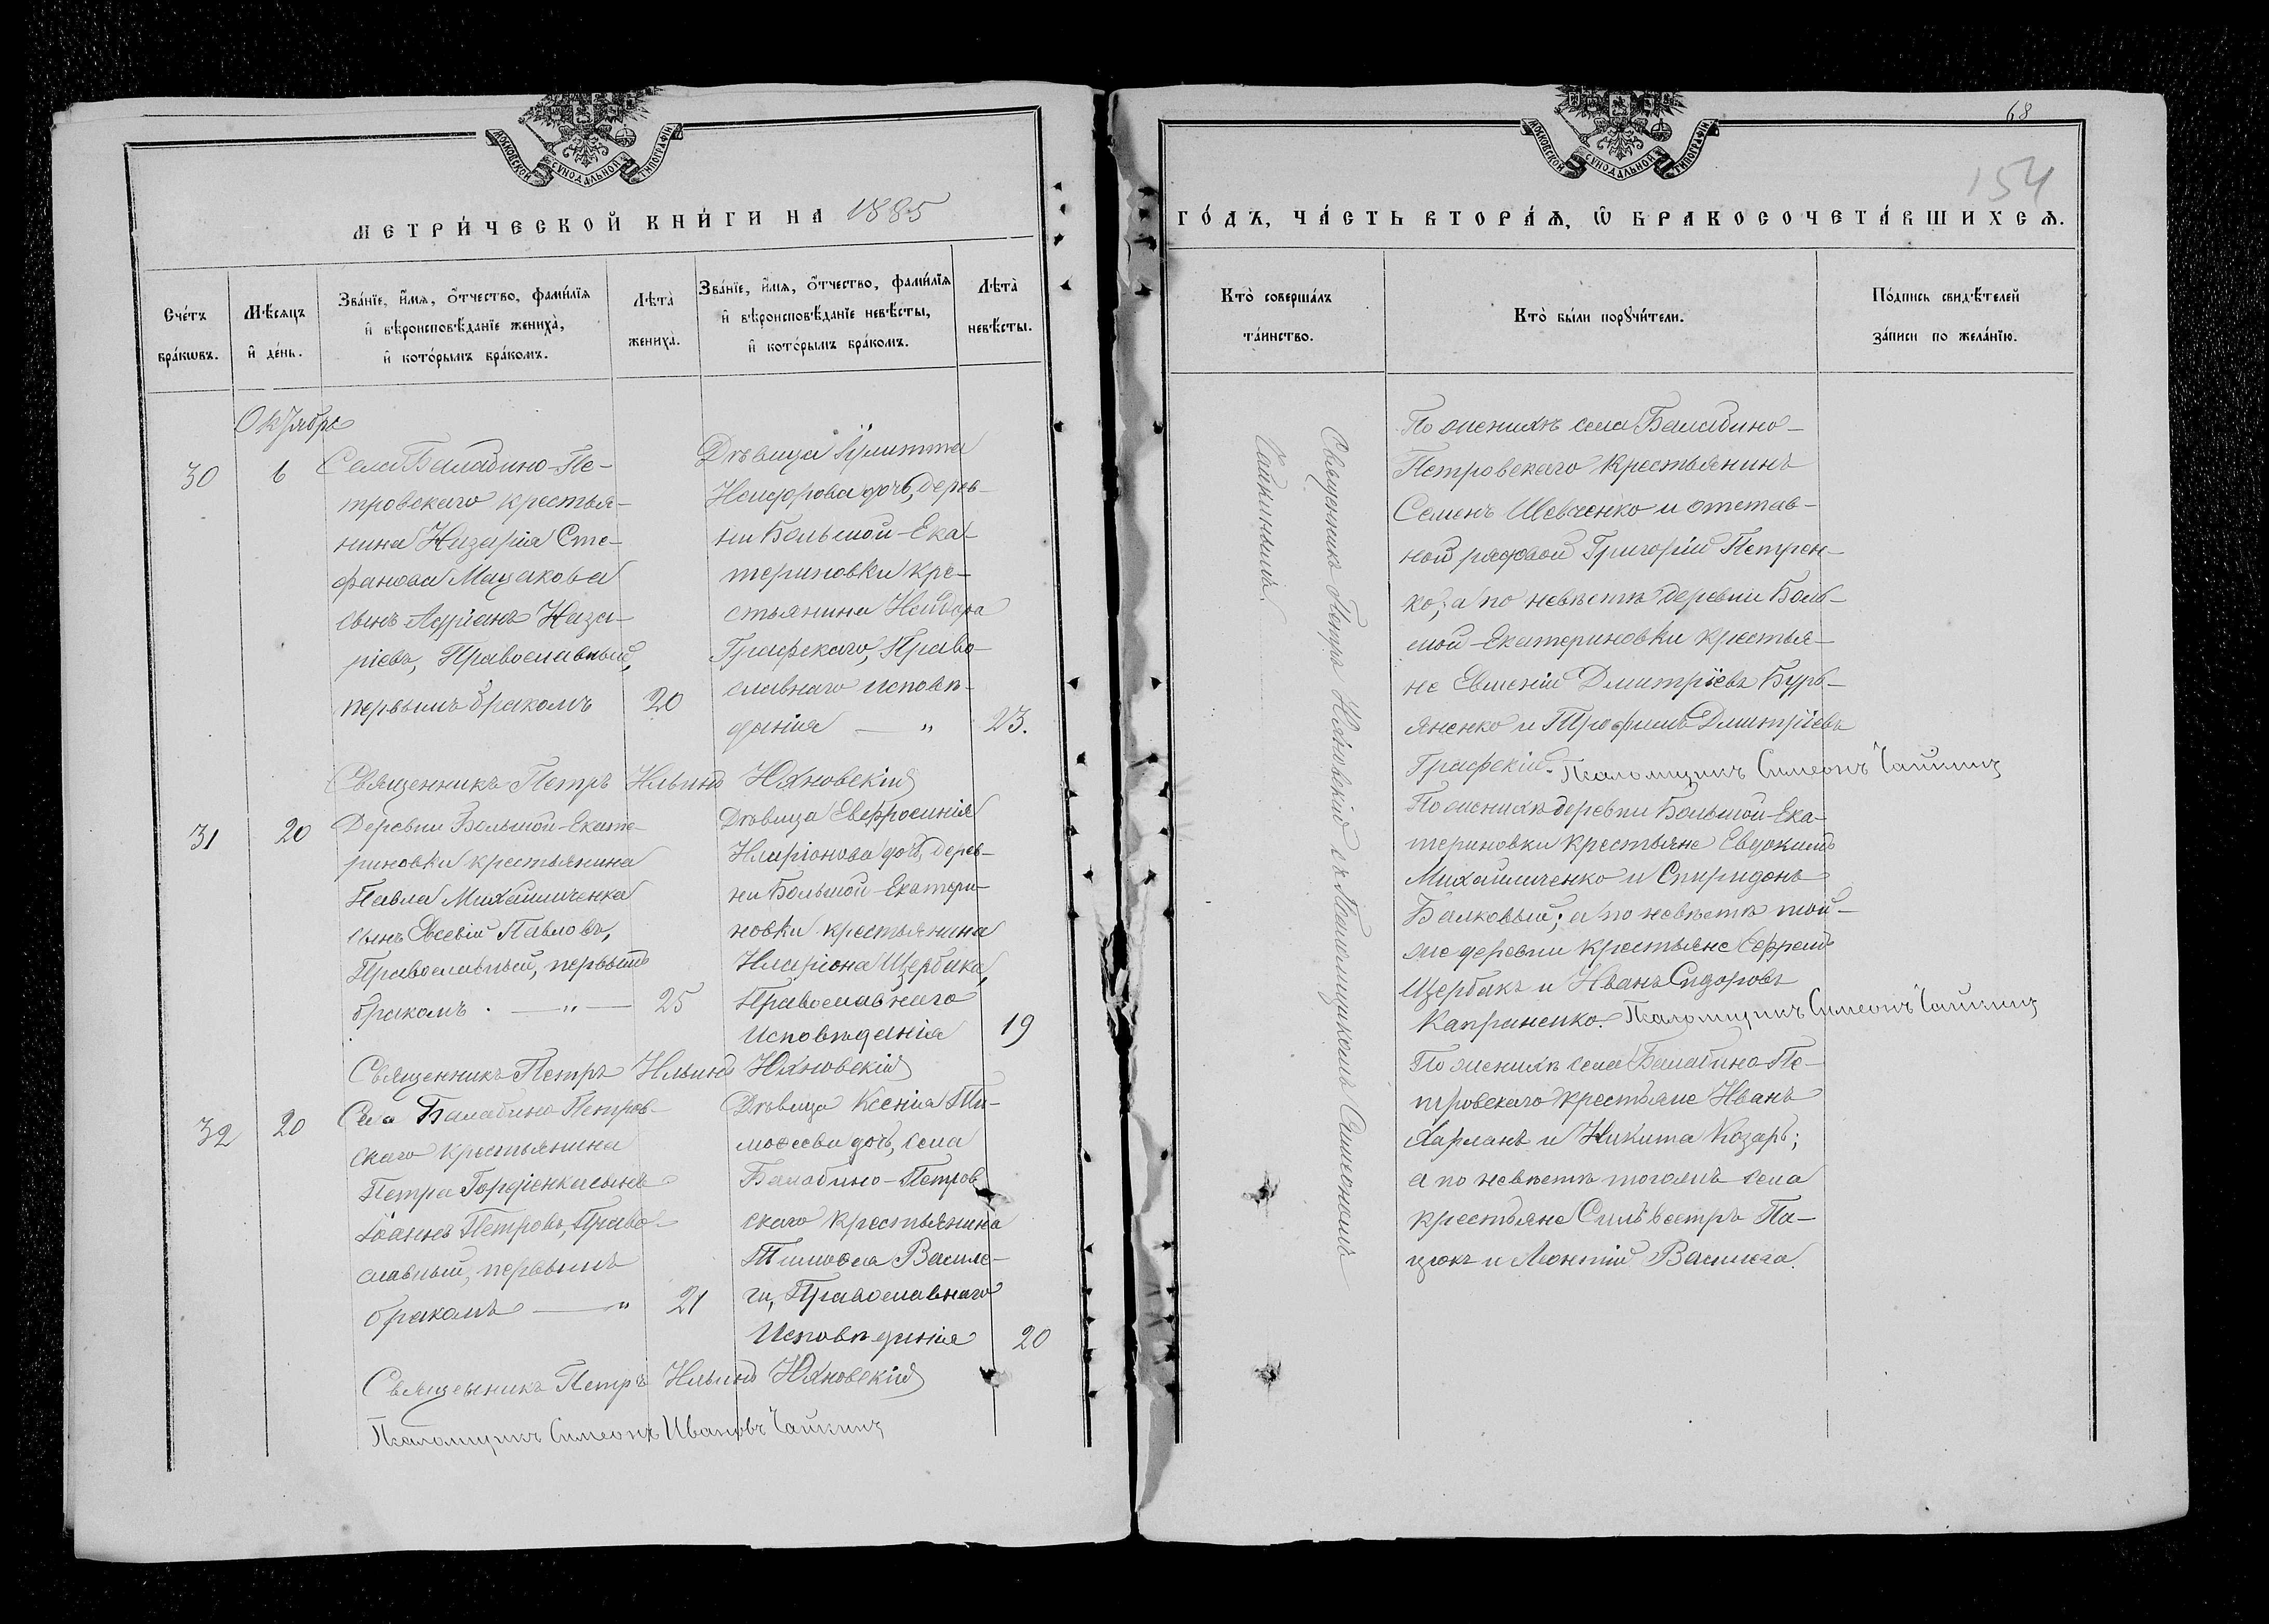 МОСКОВСКОЙ СѴНОДАЛЬНОЙ ТИПОГРАФІИ
МЕТРИ́ЧЕСКОЙ КНИ́ГИ НА 1885
Сче́тъ бра́кѡвъ.
Мѣ́сяцъ и҆ де́нь.
Зва́нїе, и҆́мѧ, ѻ҆́тчество, фами́лїѧ
и҆ вѣроисповѣ́данїе жениха̀,
и҆ кото́рымъ бра́комъ.
Лѣта̀
жениха̀.
Зва́нїе, и҆́мѧ, ѻ҆́тчество, фами́лїѧ
и҆ вѣроисповѣ́данїе невѣ́сты,
и҆ кото́рымъ бра́комъ.
Лѣта̀
невѣ́сты.
Октября
30
6
Села Балабино-Пе-
тровскаго крестья-
нина Назарія Сте-
фанова Мацакова
сынъ Адріанъ Наза-
ріевъ, Православный,
первымъ бракомъ
20
Дѣвица Іулитта
Исидорова дочь, дерев-
ни Большой-Ека-
териновки кре-
стьянина Исидора
Графскаго, Право-
славнаго исповѣ-
данія — "
23.
Священникъ Петръ Ильинъ Юхновскій
31
20
Деревни Большой-Екате-
риновки крестьянина
Павла Михайличенка
сынъ Евсевій Павловъ,
Православный, первымъ
бракомъ . — " —
25
Дѣвица Евфросинія
Иларіонова дочь, дерев-
ни Большой-Екатери-
новки крестьянина
Иларіона Щербака,
Православнаго
Исповѣданія
19
Священникъ Петръ Ильинъ Юхновскій
32
20
Села Балабино-Петров-
скаго крестьянина
Петра Гордіенка сынъ
Іоаннъ Петровъ, Право-
славный, первымъ
бракомъ — "
21
Дѣвица Ксенія Ти-
моѳеева дочь, села
Балабино-Петров
скаго крестьянина
Тимоѳея Василе-
ги, Православнаго
Исповѣданія
20
Священникъ Петръ Ильинъ Юхновскій
Псаломщикъ Симеонъ Ивановъ Чайкинъ
68
154
МОСКОВСКОЙ СѴНОДАЛЬНОЙ ТИПОГРАФІИ
ГО́ДЪ, ЧА́СТЬ ВТОРА́Ѧ, Ѽ БРАКОСОЧЕТА́ВШИХСѦ.
Кто̀ соверша́лъ
та́инство.
Кто̀ бы́ли порꙋчи́тели.
По́дпись свидѣ́телей
за́писи по жела́нїю.
Священникъ Петръ Юхновскій съ Псаломщикомъ Симеономъ
Чайкинымъ.
По женихѣ села Балабино-
Петровскаго крестьянинъ
Семенъ Шевченко и отстав-
ной рядовой Григорій Петрен-
ко; а по невѣстѣ деревни Боль-
шой-Екатериновки крестья-
не Евменій Дмитріевъ Бурь-
яненко и Трофимъ Дмитріевъ
Графскій. Псаломщикъ Симеонъ Чайкинъ
По женихѣ деревни Большой-Ека-
териновки крестьяне Евдокимъ
Михайличенко и Спиридонъ
Балковый; а по невѣстѣ той-
же деревни крестьяне Ефремъ
Щербакъ и Иванъ Сидоровъ
Каприненко. Псаломщикъ Симеонъ Чайкинъ
По женихѣ села Балабино-Пе-
тровскаго крестьяне Иванъ
Харланъ и Никита Козарь;
а по невѣстѣ тогожъ села
крестьяне Сильвестръ Па-
цюкъ и Леонтій Василега.